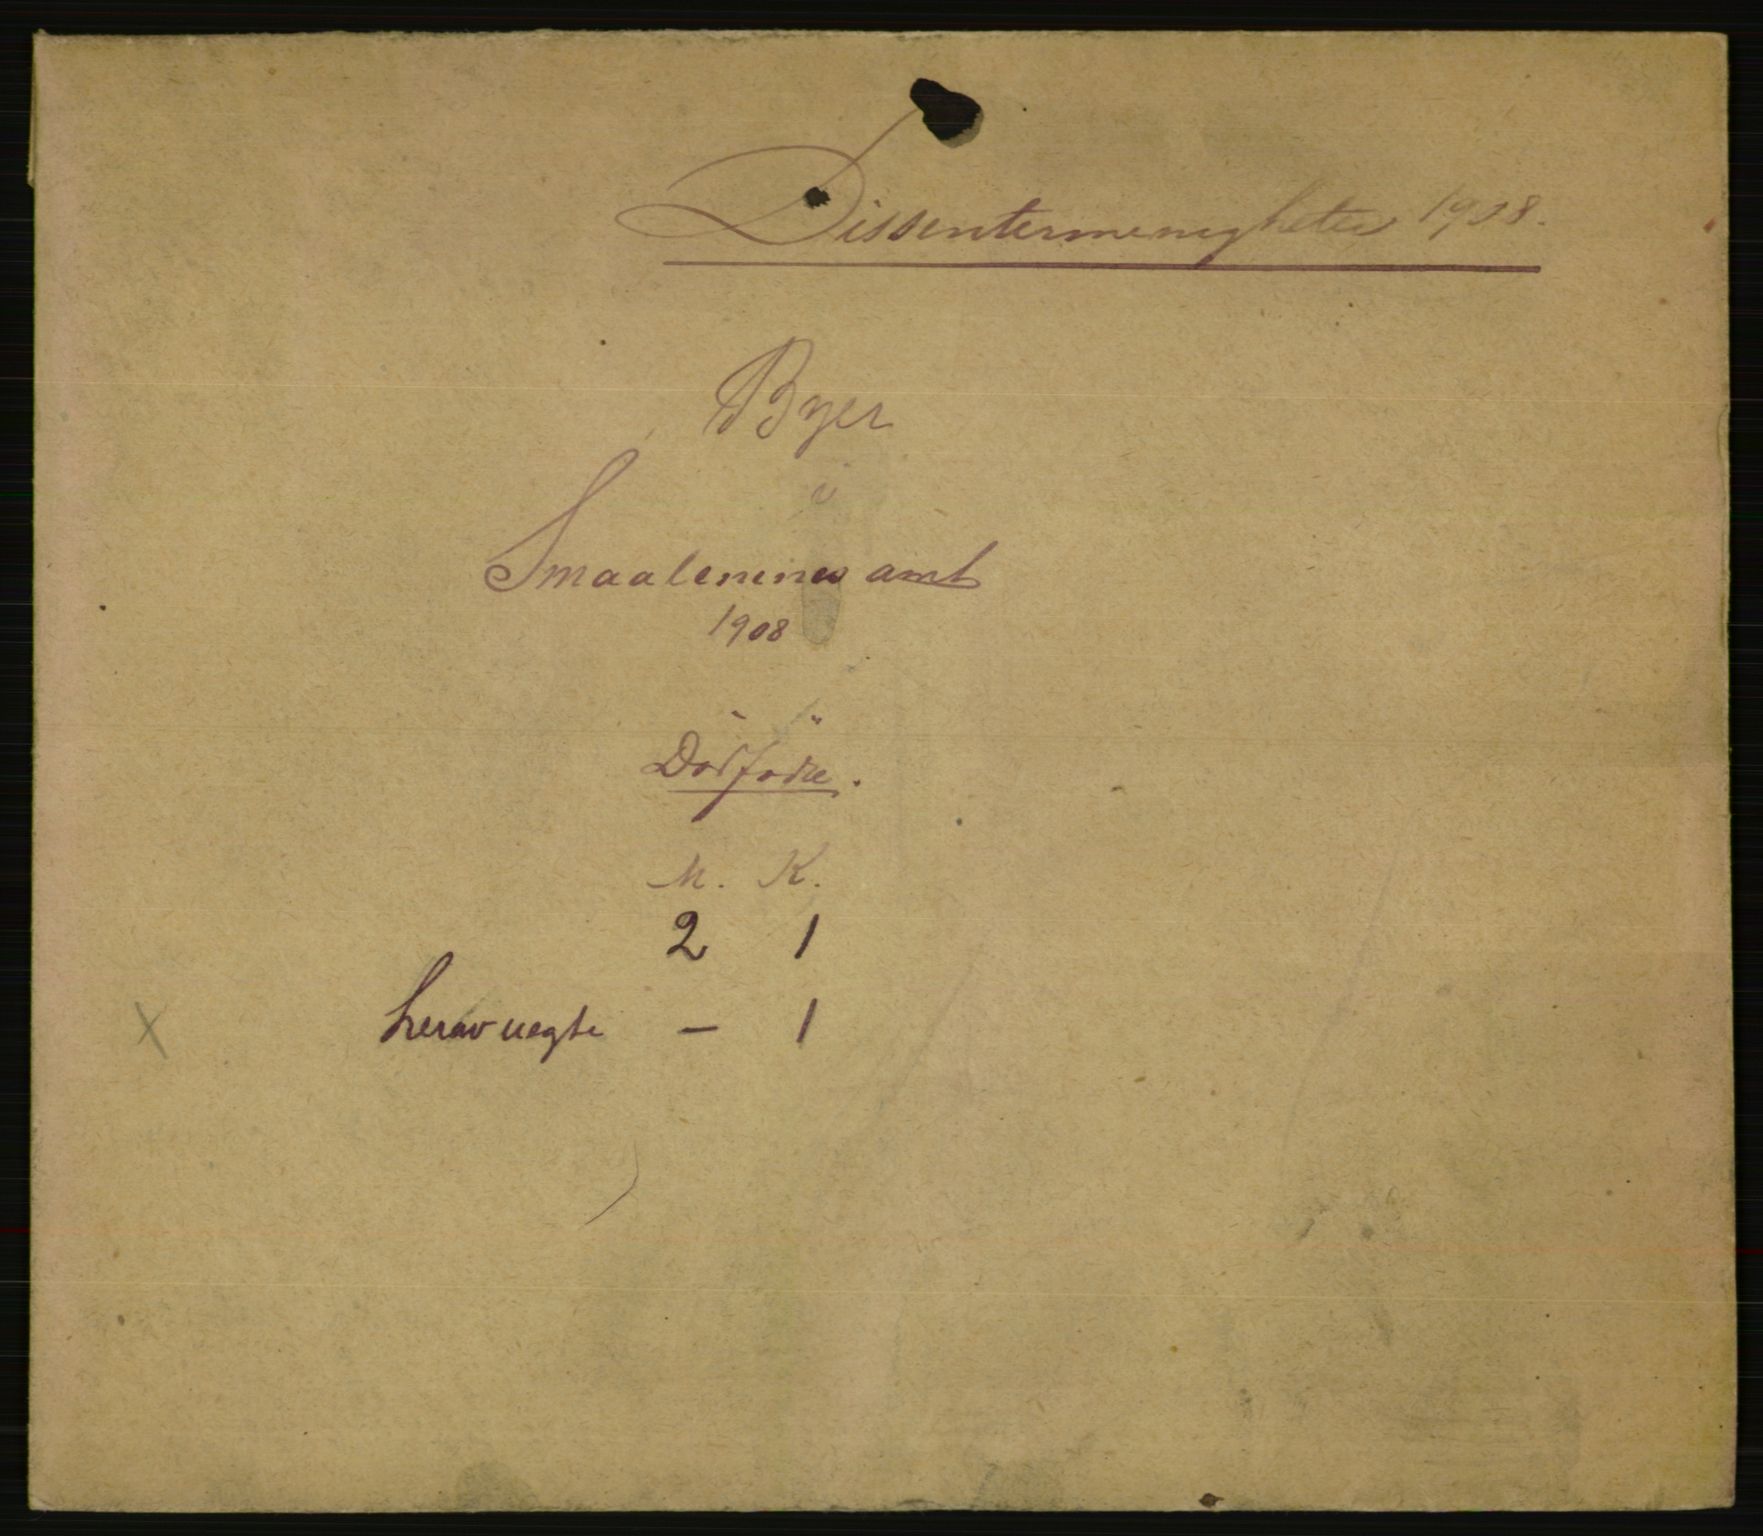 Dissentermenigheter 1908.
Byer
i
Smaalenenes amt
1908
Dødfødte.
M. K.
2 1
herav uegte — 1
X